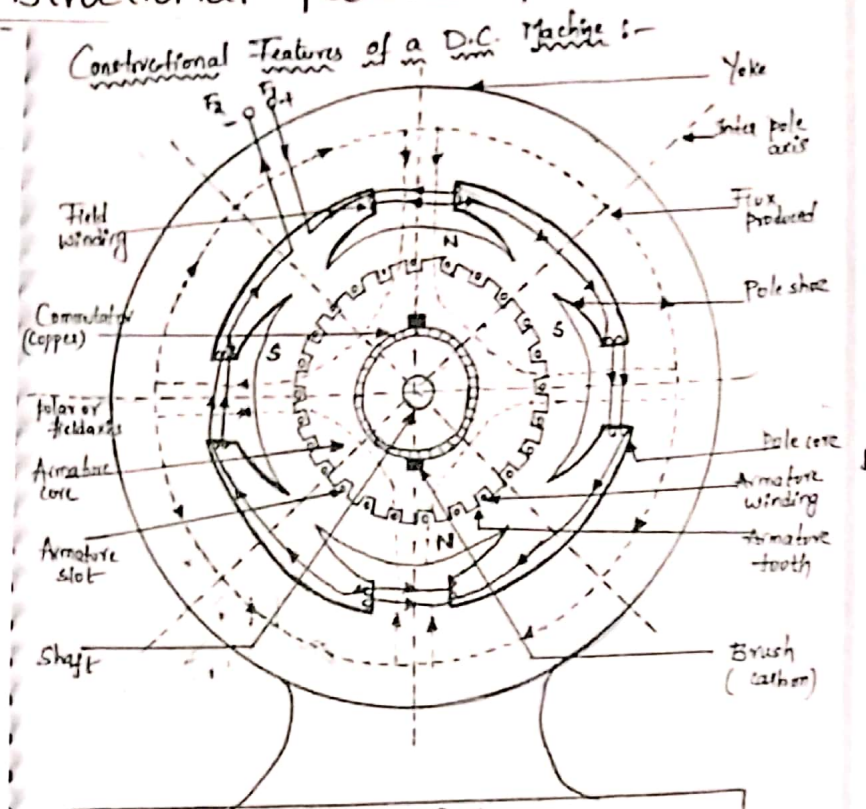 Constructional Features of a D.C. Machine :-
F2 F1
- +
Yoke
Inter pole
axis
Field
winding
Flux
produced
N
Pole shoe
Commutator
(copper)
S
S
Polar or
fieldaxis
Pole core
Armature
core
Armature
winding
N
Armature
tooth
Armature
slot
Shaft
Brush
(carbon)